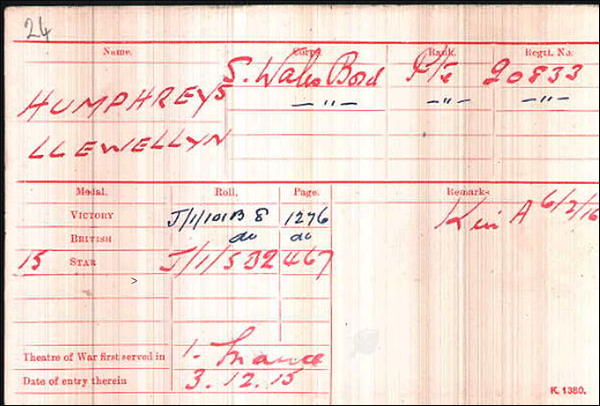 24
Name. Corps. Rank. Regtl. No.
HUMPHREYS S. Wales Bord Pte 20833
—"— —"— —"—
LLEWELLYN
Medal. Roll. Page. Remarks
VICTORY J/1/101B8 1276 K in A 6/2/16
BRITISH do do
15 STAR J/1/5B2 467
Theatre of War first served in 1. France
Date of entry therein 3.12.15
K. 1380.